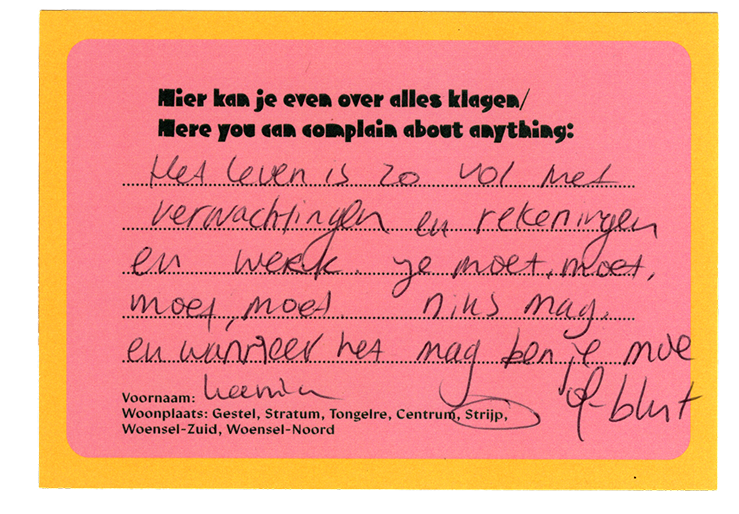 Hier kan je even over alles klagen/
Here you can complain about anything:
Het leven is zo vol met
verwachtingen en rekeningen
en werk. je moet, moet,
moet, moet. niks mag.
en wanneer het mag ben je moe
of blut
Voornaam:
Woonplaats: Gestel, Stratum, Tongelre, Centrum, Strijp,
Woensel-Zuid, Woensel-Noord